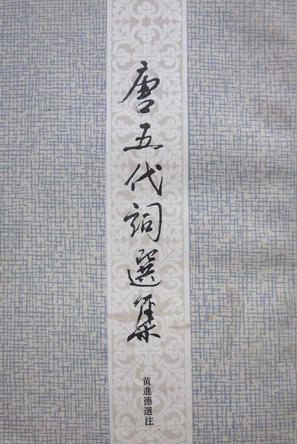 唐五代詞選集
黄進德選注